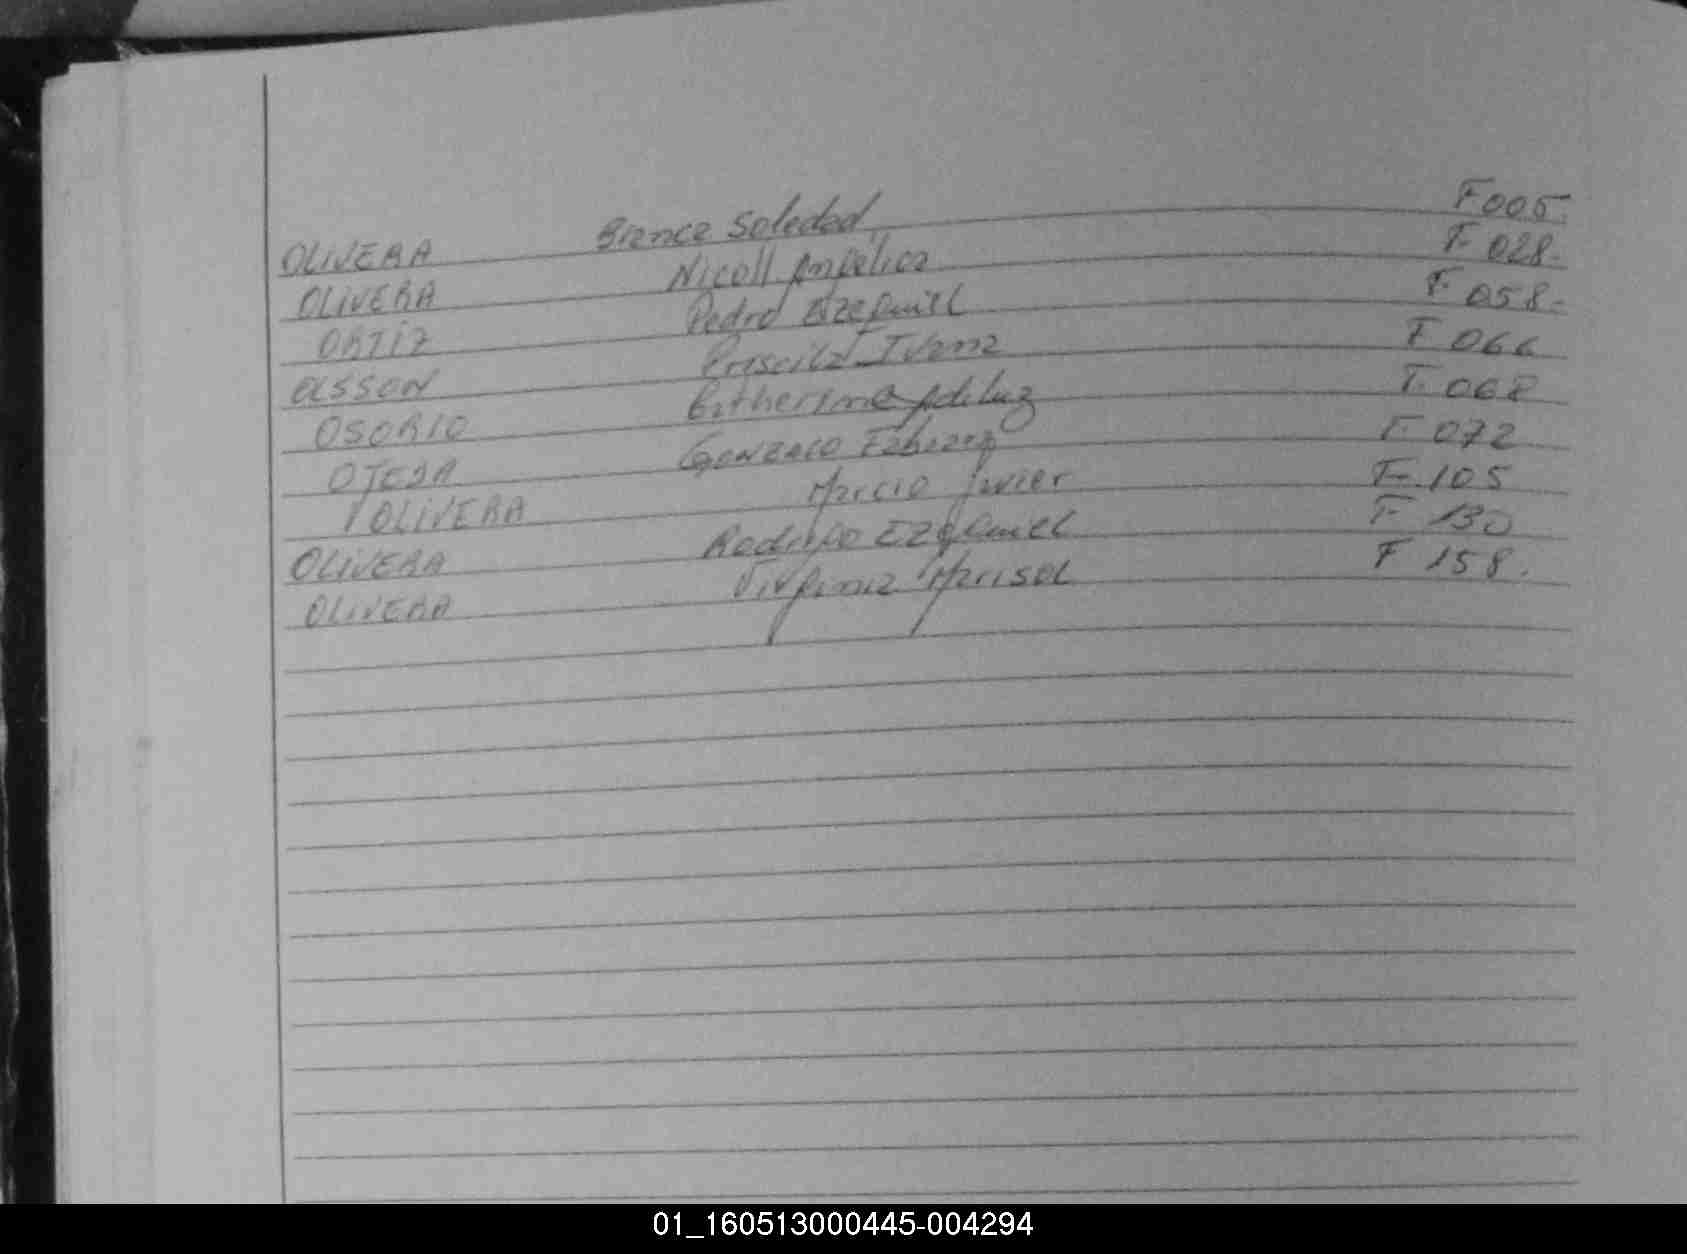 OLIVERA Bianca Soledad F005.
OLIVERA Nicoll Angélica F- 028.
ORTIZ Pedro Ezequiel F- 058.
OLSSON Priscila Ivana F 066
OSORIO Catherine F- 068
OJEDA Gonzalo F- 072
OLIVERA Marcio Javier F- 105
OLIVERA Rodrigo Ezequiel F 130
OLIVERA Virginia Marisol F 158.
01_160513000445-004294